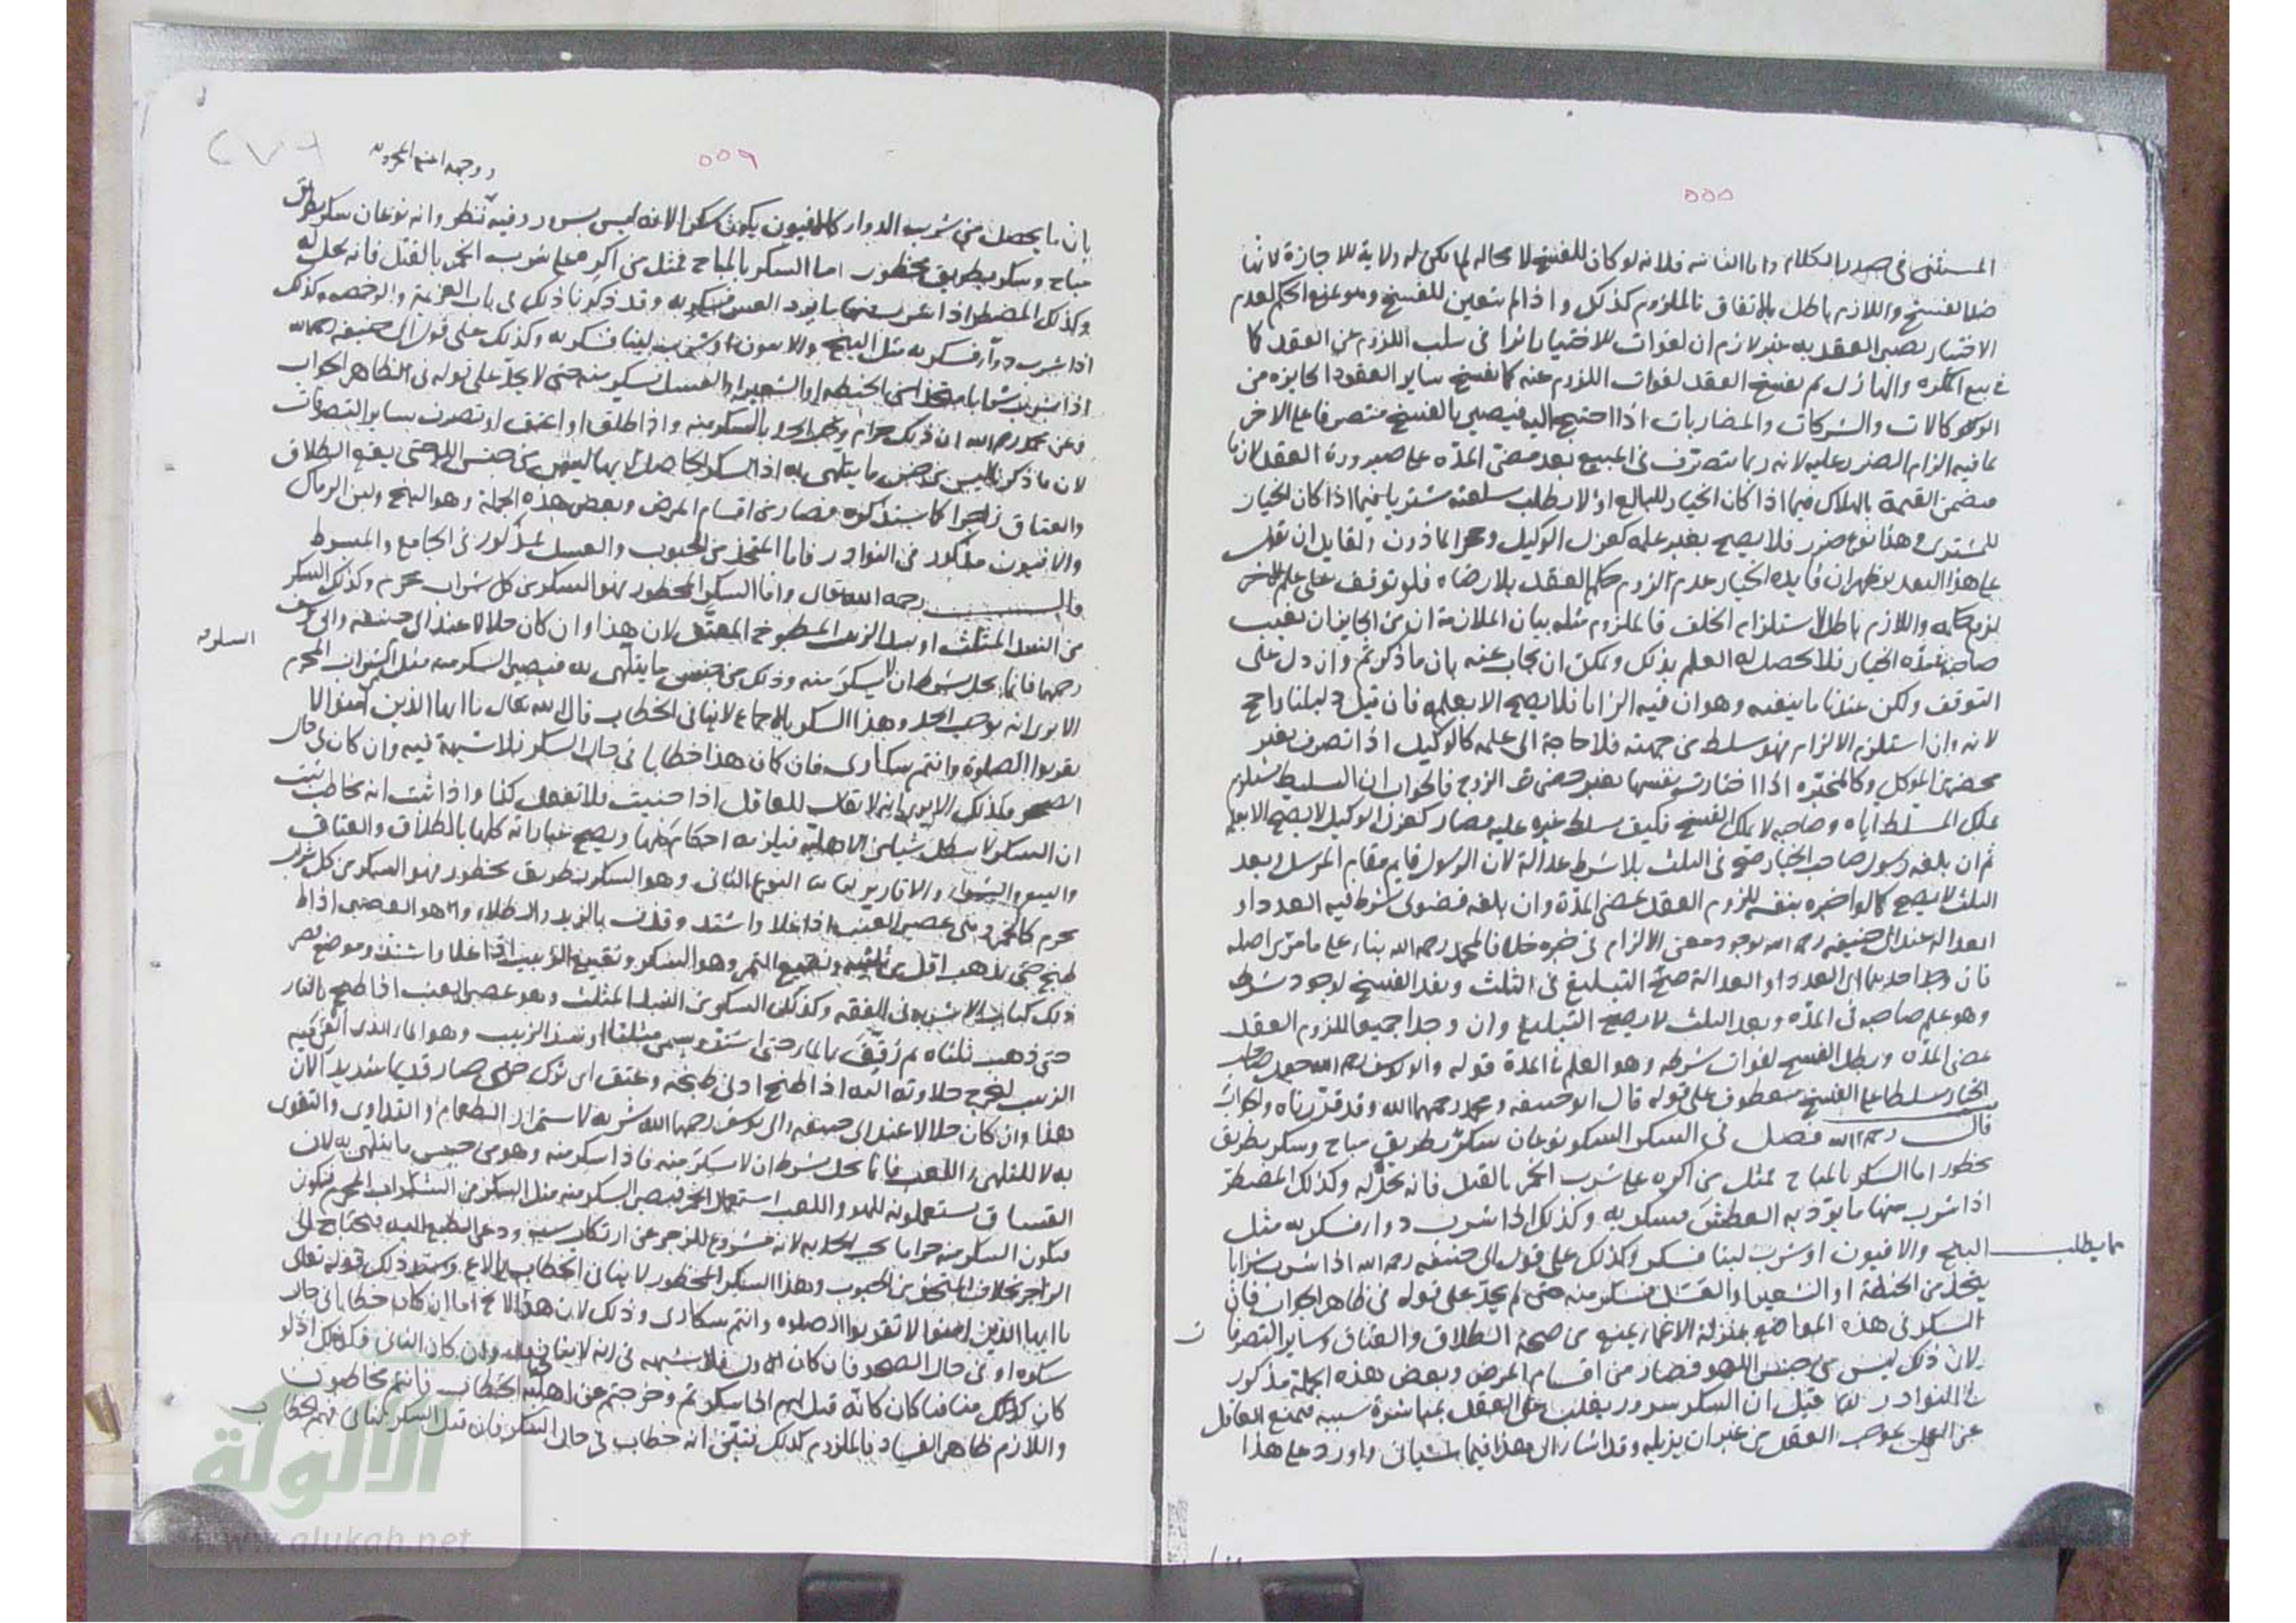 ٥٥٥
المستثنى في صدر الكلام واما الثانية فلانه لو كان للفسخ لا محالة لم يكن له ولاية للاجازة لانها
ضد الفسخ واللازم باطل بالاتفاق فالملزوم كذلك واذا لم يتعين للفسخ وهو يمنع الحكم لعدم
الاختيار يصير العقد به غير لازم لان لفوات الاختيار اثرا في سلب اللزوم عن العقد كما
في بيع المكره والهازل ثم يفسخ العقد لفوات اللزوم عنه كما يفسخ ساير العقود الجايزة من
الوكالات والشركات والمضاربات اذا احتيج اليه فيصير بالفسخ متصرفا على الاخر
بما فيه الزام الضرر عليه لانه ربما يتصرف في المبيع بعد مضي المدة على صيرورة العقد لازما
فيضمن القيمة بالهلاك فيما اذا كان الخيار للبايع او لا يطلب لسلعته مشتريا فيما اذا كان الخيار
للمشتري وهذا نوع ضرر فلا يصح بغير علمه كعزل الوكيل وحجر الماذون ولقايل ان يقول
على هذا التعدير يظهر ان فايدة الخيار عدم لزوم حكم العقد بلا رضاه فلو توقف على علم الاخر
لزم حكمه واللازم باطل لاستلزام الخلف فالملزوم مثله بيان الملازمة ان من الجايز ان يغيب
صاحبه مدة الخيار فلا يحصل له العلم بذلك ويمكن ان يجاب عنه بان ما ذكرتم وان دل على
التوقف ولكن عندنا ما ينفيه وهو ان فيه الزاما فلا يصح الا بعلمه فان قيل دليلنا راجح
لانه وان استلزم الالزام فهو مسلط من جهته فلا حاجة الى علمه كالوكيل اذا تصرف بغير
محضر من الموكل وكالمخيرة اذا اختارت نفسها بغير محضر من الزوج فالجواب ان التسليط يستلزم
تملك المسلط اياه وصاحبه لا يملك الفسخ فكيف يسلط غيره عليه فصار كعزل الوكيل لا يصح الا بعلمه
ثم ان بلغه رسول صاحب الخيار صح في الثلث بلا شرط عدالة لان الرسول قايم مقام المرسل وبعد
الثلث لا يصح كما لو اخبره بنفسه للزوم العقد بمضي المدة وان بلغه فضولي شرط فيه العدد او
العدالة عند ابي حنيفة رحمه الله لوجود معنى الالزام في خبره خلافا لمحمد رحمه الله بناء على ما مر من اصله
فان وجد احدهما اي العدد او العدالة صح التبليغ في الثلث ونفذ الفسخ لوجود شرطه
وهو علم صاحبه في المدة وبعد الثلث لا يصح التبليغ وان وجدا جميعا للزوم العقد
بمضي المدة وبطل الفسخ لفوات شرطه وهو العلم في المدة قوله وابو يوسف رحمه الله جعل صاحب
الخيار مسلطا على الفسخ معطوف على قوله قال ابو حنيفة ومحمد رحمهما الله وقد قررناه وجوابه
قال رحمه الله فصل في السكر السكر نوعان سكر بطريق مباح وسكر بطريق
محظور اما السكر بالمباح فمثل من اكره على شرب الخمر بالقتل فانه يحل له وكذلك المضطر
اذا شرب منها ما يرد به العطش فسكر به وكذلك اذا شرب دوا فسكر به مثل
البنج والافيون او شرب لبنا فسكر وكذلك على قول ابي حنيفة رحمه الله اذا شرب شرابا
يتخذ من الحنطة او الشعير او العسل فسكر منه حتى لم يحد على قوله في ظاهر الجواب فان
السكر في هذه المواضع بمنزلة الاغماء يمنع من صحة الطلاق والعتاق وساير التصرفات
لان ذلك ليس من جنس اللهو فصار من اقسام المرض وبعض هذه الجملة مذكور
في النوادر قيل ان السكر سرور يغلب على العقل بمباشرة سببه فيمنع العاقل
عن العمل بموجب العقل من غير ان يزيله وقد اشار الى هذا فيما سياتي واورد على هذا
٥٥٦
٢٧٦
بان ما يحصل من شرب الدوا كالافيون يكون سكرا لانه ليس بسرور وفيه نظر وانه نوعان سكر بطريق
مباح وسكر بطريق محظور اما السكر بالمباح فمثل من اكره على شرب الخمر بالقتل فانه يحل له
وكذلك المضطر اذا شرب منها ما يرد العطش فسكر به وقد ذكرنا ذلك في باب العزيمة والرخصة وكذلك
اذا شرب دوا فسكر به مثل البنج والافيون او شرب لبنا فسكر به وكذلك على قول ابي حنيفة رحمه الله
اذا شرب شرابا متخذا من الحنطة او الشعير او العسل فسكر منه حتى لا يحد على قوله في الظاهر الجواب
وعن محمد رحمه الله ان ذلك حرام ويجب الحد بالسكر منه واذا طلق او اعتق او تصرف بساير التصرفات
لان ما ذكرنا ليس من جنس ما يتلهى به اذا السكر الحاصل بها ليس من جنس اللهو حتى يقع الطلاق
والعتاق زاجرا كما سنذكره فصار من اقسام المرض وبعض هذه الجملة وهو البنج ولبن الرماك
والافيون مذكور في النوادر فاما المتخذ من الحبوب والعسل فمذكور في الجامع والمبسوط
قال رحمه الله قال واما السكر المحظور فهو السكر من كل شراب محرم وكذلك السكر
من النبيذ المثلث او نبيذ الزبيب المطبوخ المعتق لان هذا وان كان حلالا عند ابي حنيفة وابي يوسف
رحمهما فانما يحل بشرط ان لا يسكر منه وذلك من جنس ما يتلهى به فيصير السكر منه مثل الشراب المحرم
الا يرى انه يوجب الحد وهذا السكر بالاجماع لا ينافي الخطاب قال الله تعالى يا ايها الذين امنوا لا
تقربوا الصلوة وانتم سكارى فان كان هذا خطابا في حال السكر فلا شبهة فيه وان كان في حال
الصحو فكذلك الا يرى انه لا يقال للعاقل اذا جننت فلا تفعل كذا واذا ثبت انه مخاطب ثبت
ان السكر لا يبطل شيا من الاهلية فيلزمه احكام كلها ويصح عباراته كلها بالطلاق والعتاق
والبيع والشراء والاقارير النوع الثاني وهو السكر بطريق محظور فهو السكر من كل شراب
محرم كالخمر وهي عصير العنب اذا غلا واشتد وقذف بالزبد والطلاء وهو العصير اذا
طبخ حتى يذهب اقل من ثلثيه ونقيع التمر وهو السكر ونقيع الزبيب اذا غلا واشتد وموضع
ذلك كتاب الاشربة في الفقه وكذلك السكر من النبيذ المثلث وهو عصير العنب اذا طبخ بالنار
حتى ذهب ثلثاه ثم رقق بالماء حتى اشتد ويسمى مثلثا او نبيذ الزبيب وهو الماء الذي القي فيه
الزبيب ليخرج حلاوته اليه اذا طبخ ادنى طبخة وعتق اي ترك حتى صار قديما شديدا لان
هذا وان كان حلالا عند ابي حنيفة وابي يوسف رحمهما الله شربه لاستمراء الطعام والتداوي والتقوي
به لا للتلهي واللعب فانما يحل بشرط ان لا يسكر منه فاذا سكر منه وهو من جنس ما يتلهى به لان
الفساق يستعملونه للهو واللعب استعمال الخمر فيصير السكر منه مثل السكر من الشراب المحرم فيكون
فيكون السكر منه حراما يجب الحد به لانه مشروع للزجر عن ارتكاب سببه ودعى الطبع اليه فيحتاج الى
الزاجر بخلاف المتخذ من الحبوب وهذا السكر المحظور لا ينافي الخطاب بالاجماع وسند ذلك قوله تعالى
يا ايها الذين امنوا لا تقربوا الصلوه وانتم سكارى وذلك لان هذا اما ان كان خطابا في حال
سكره او في حال الصحو فان كان الاول فلا شبهة في انه لا ينافيه وان كان الثاني فكذلك اذ لو
كان منافيا كان كانه قيل لهم اذا سكرتم وخرجتم عن اهلية الخطاب فانتم مخاطبون
واللازم ظاهر الفساد فالملزوم كذلك فتبين انه خطاب في حال السكر فان قيل السكر ينافي فهم الخطاب
الالوكة
www.alukah.net